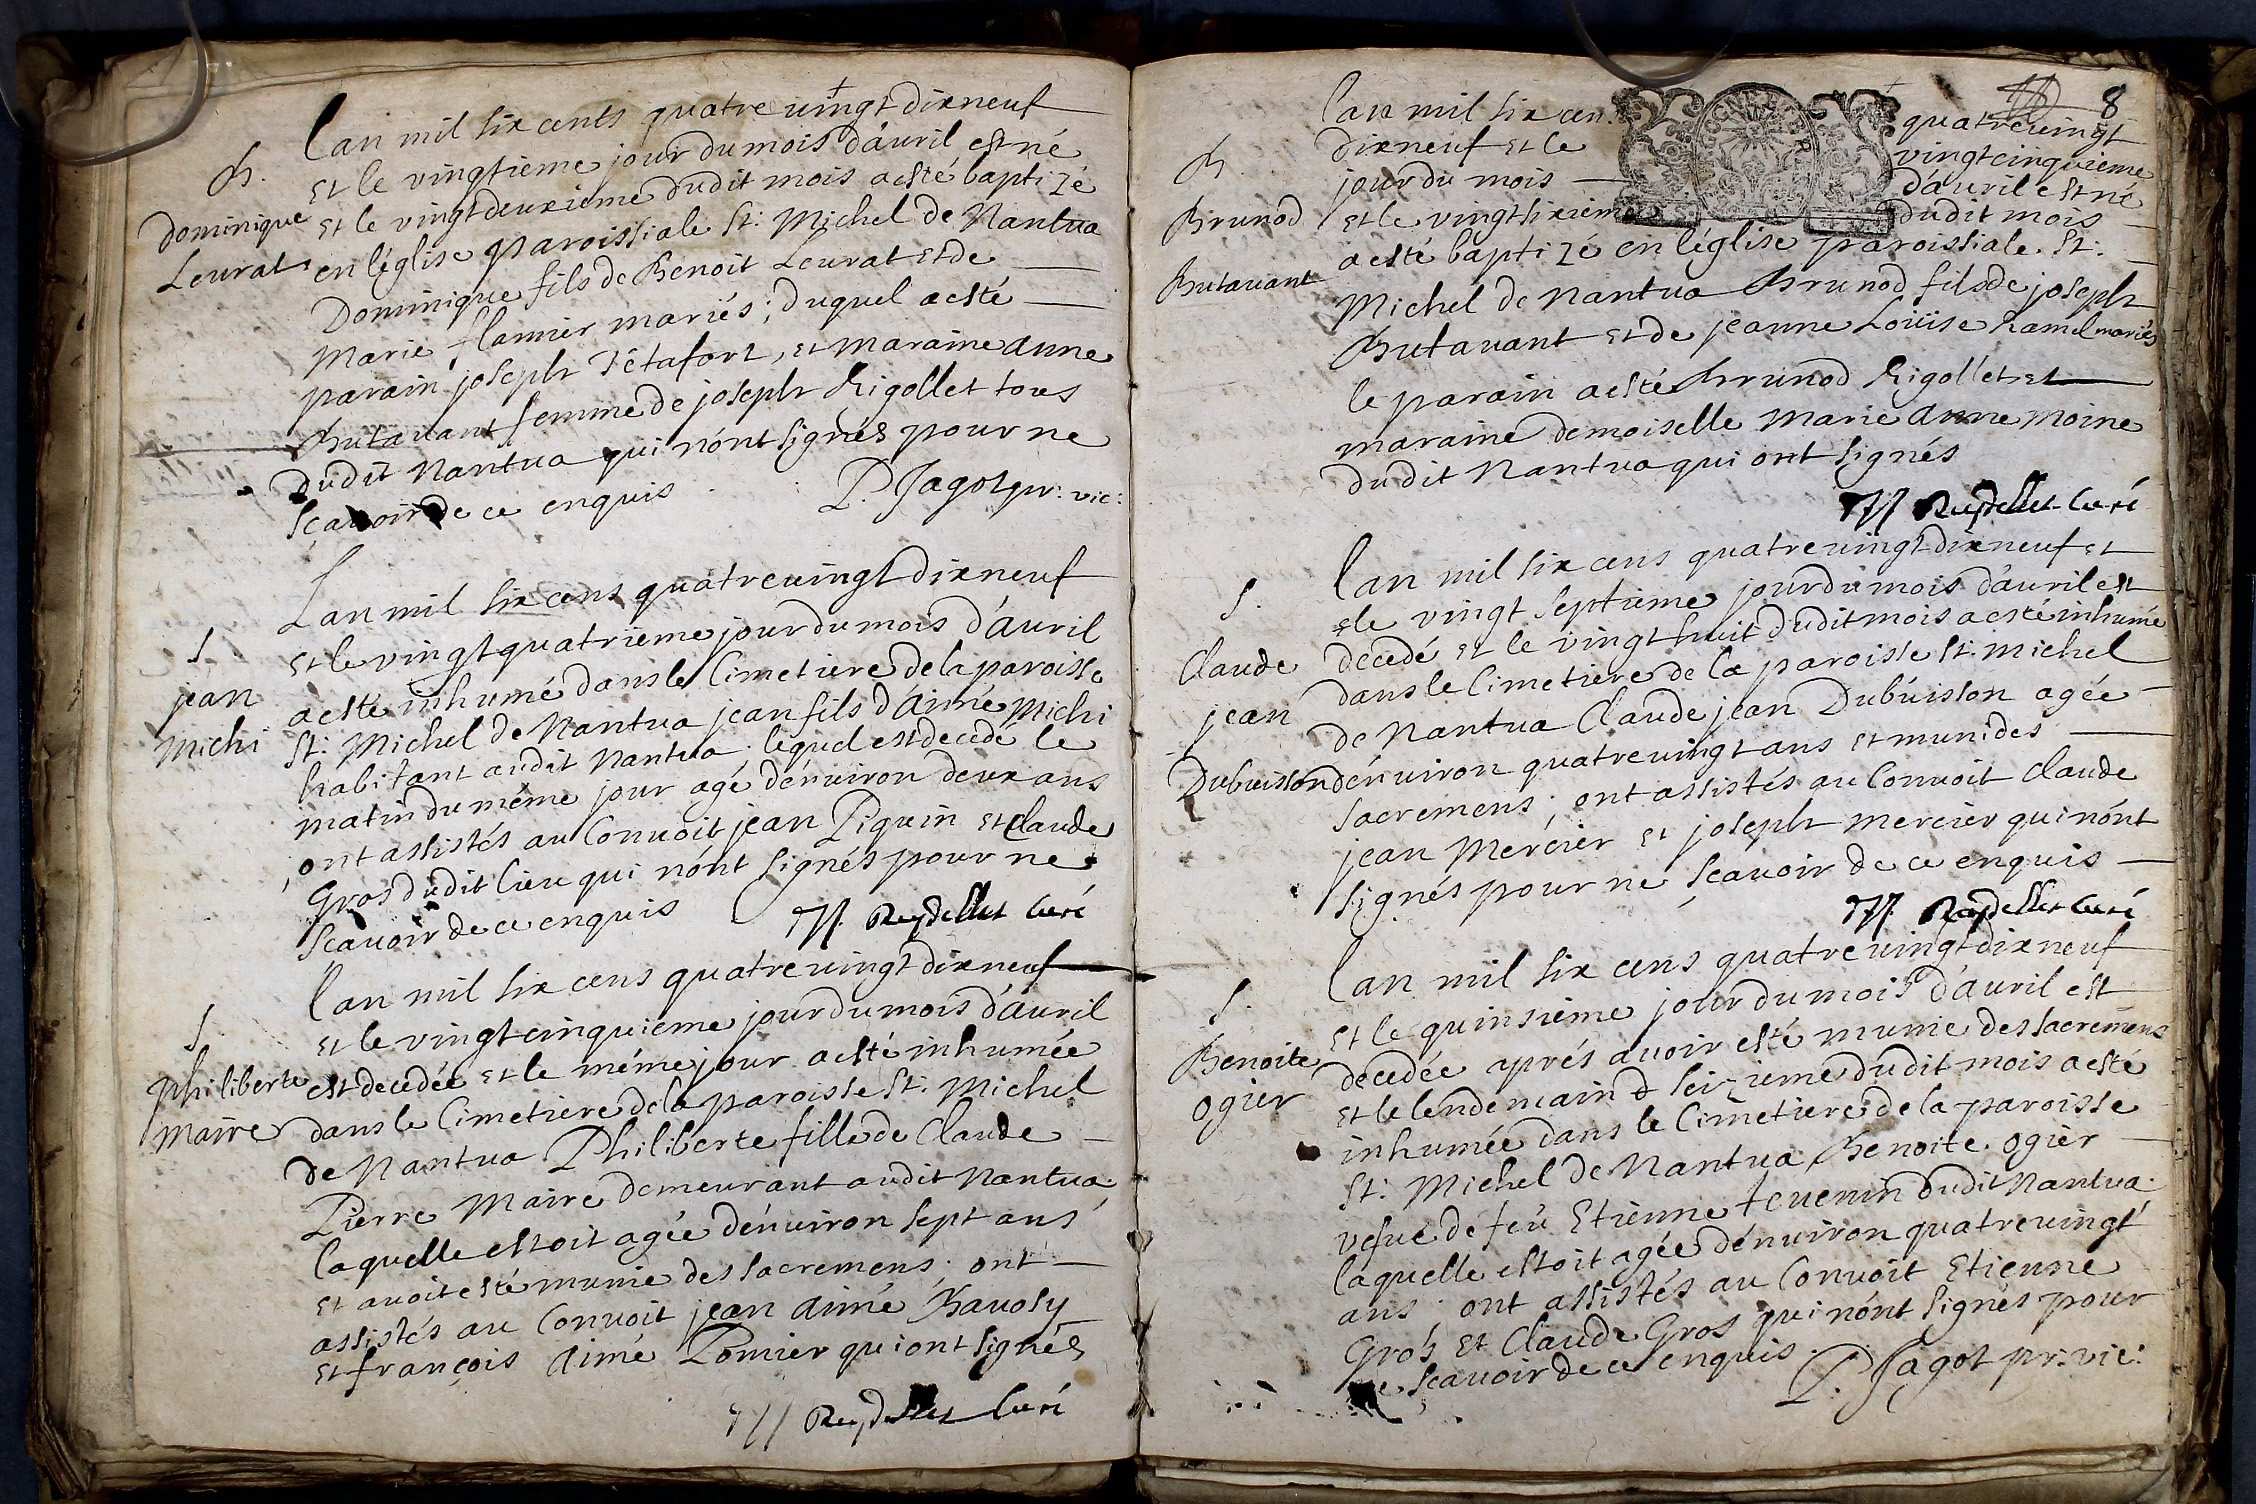 Lan mil six cents quatre vingt dixneuf
B. et le vingtieme jour du mois d'avril est né
Dominique et le vingtdeuxieme dudit mois a esté baptizé
Leurat en léglise paroissiale St: Michel de Nantua
Dominique fils de Benoit Leurat et de
Marie flamier mariés; duquel a esté
parain joseph Tétafort, et maraine anne
Butavant femme de joseph Rigollet tous
dudit Nantua qui n'ont signés pour ne
sçavoir de ce enquis P. Jagot pr: vic:
Lan mil six cens quatrevingt dixneuf
S. et le vingt quatrieme jour du mois d'avril
jean a esté inhumé dans le Cimetiere de la paroisse
Michi St: Michel de Nantua jean fils d'Aimé Michi
habitant audit Nantua lequel est decedé le
matin du méme jour agé dénuiron deux ans
ont assistés au Convoit jean Piquin et claude
Gros dudit lieu qui n'ont signés pour ne
sçavoir de ce enquis Reydellet Curé
Lan mil six cens quatrevingt dixneuf
S. et le vingt cinquieme jour du mois d'avril
Philiberte est decedée et le méme jour a esté inhumée
Maire dans le Cimetiere de la paroisse St: Michel
de Nantua Philiberte fille de Claude
Pierre Maire demeurant audit Nantua
laquelle estoit agée dénuiron sept ans
et avoit esté munie des sacremens. ont
assistés au Convoit jean aimé Bavosy
et françois aimé Pomier qui ont signés
Reydellet Curé
8
Lan mil six cen. quatrevingt
B dixneuf et le vingtcinquieme
jour du mois d'avril est né
Brunod et le vingtsixieme dudit mois
a esté baptizé en léglise paroissiale St:
Butavant Michel de Nantua Brunod fils de joseph
Butavant et de jeanne Loüise hamel mariés
le parain a esté Brunod Rigollet et
maraine demoiselle Marie Anne Moine
dudit Nantua qui ont signés
Reydellet Curé
Lan mil six cens quatrevingt dixneuf et
S. le vingt septieme jour du mois d'avril est
Claude decedé et le vingt huit dudit mois a esté inhumé
jean dans le Cimetiere de la paroisse St: Michel
de Nantua Claude jean Dubuisson agée
Dubuisson dénuiron quatrevingt ans et muni des
sacremens; ont assistés au Convoit Claude
jean Mercier et joseph mercier qui n'ont
signés pour ne sçavoir de ce enquis
Reydellet Curé
Lan mil six cens quatrevingt dixneuf
S. et le quinsieme jour du mois d'avril est
Benoite decedée aprés avoir esté munie des sacremens
Ogier et le lendemain & seizieme dudit mois a esté
inhumée dans le Cimetiere de la paroisse
St: Michel de Nantua Benoite Ogier
vefue de feü Etienne tevenin dudit Nantua
laquelle estoit agée dénuiron quatrevingt
ans; ont assistés au Convoit Etienne
Gros et Claude Gros qui n'ont signés pour
ne sçavoir de ce enquis. P. Jagot pr: vic: